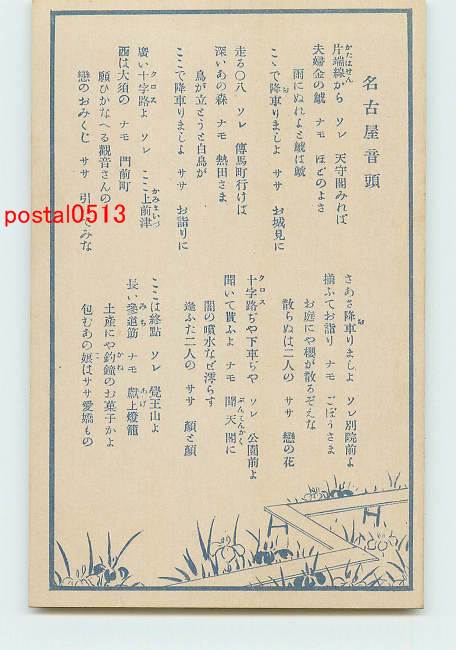 名古屋音頭
片端線から ソレ 天守閣みれば
夫婦金の鯱 ナモ ほどのよさ
雨にぬれよと鯱は鯱
こゝで降車りましよ ササ お城見に
走る〇八 ソレ 傳馬町行けば
深いあの森 ナモ 熱田さま
鳥が立とうと白鳥が
ここで降車りましよ ササ お詣りに
廣い十字路よ ソレ ここ上前津
西は大須の ナモ 門前町
願ひかなへる観音さんの
戀のおみくじ ササ 引いてみな
さあさ降車りましよ ソレ別院前よ
揃ふてお詣り ナモ ごぼうさま
お庭にや櫻が散るぞえな
散らぬは二人の ササ 戀の花
十字路ぢや下車ぢや ソレ 公園前よ
聞いて貰ふよ ナモ 聞天閣に
闇の噴水など濡らす
逢ふた二人の ササ 顔と顔
ここは終點 ソレ 覺王山よ
長い參道筋 ナモ 獻上燈籠
土産にや釣鐘のお菓子かよ
包むあの娘はササ 愛嬌もの
postal0513